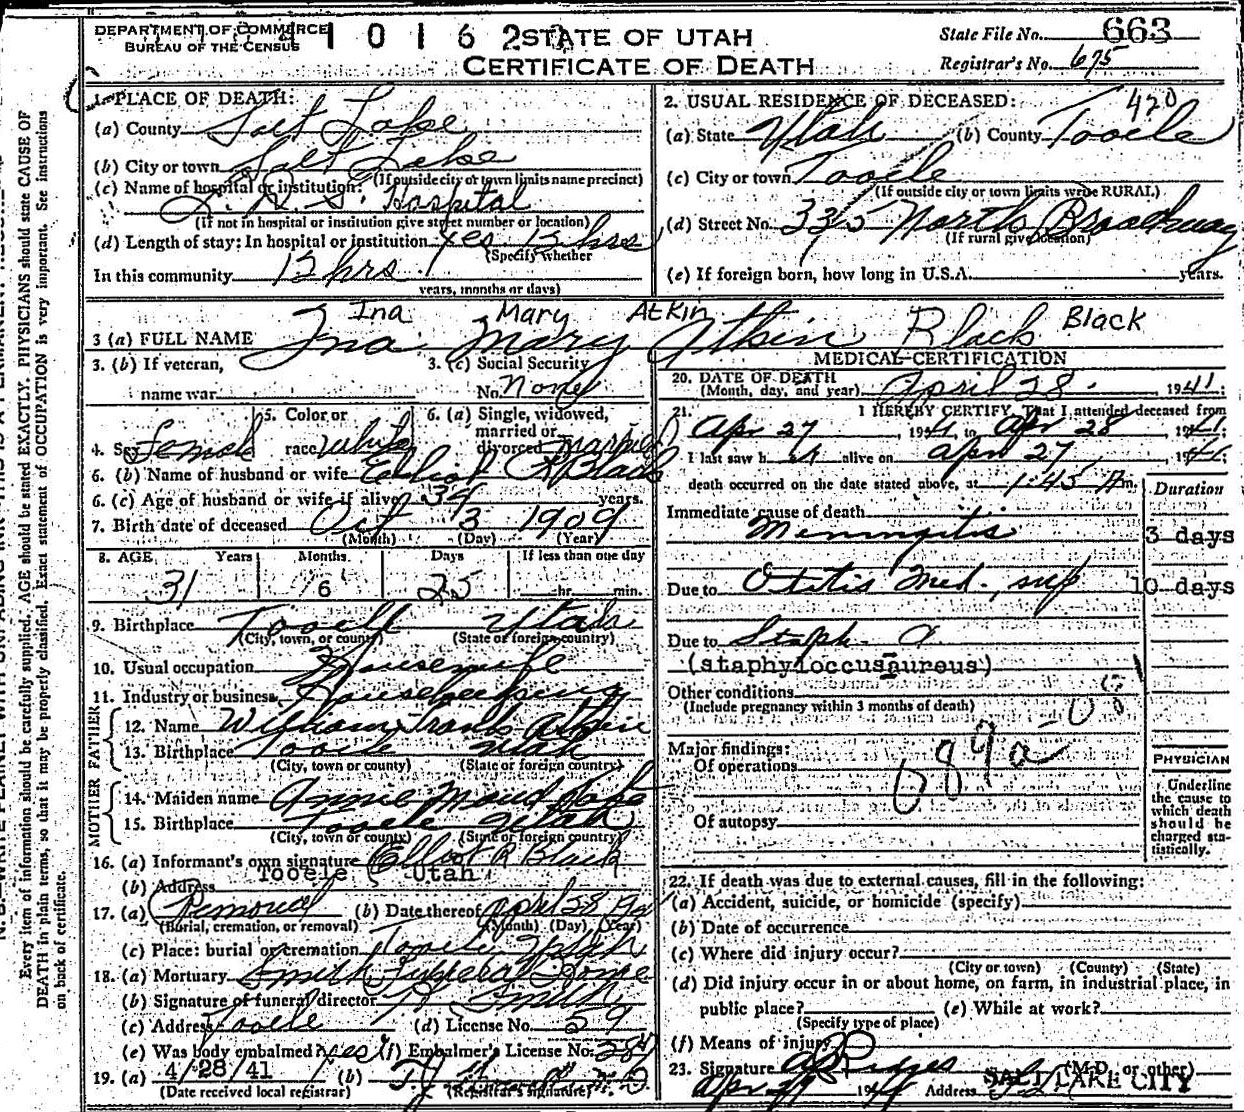 DEPARTMENT OF COMMERCE
BUREAU OF THE CENSUS
4 1 0 1 6 2
STATE OF UTAH
CERTIFICATE OF DEATH
State File No. 663
Registrar's No. 675
1. PLACE OF DEATH:
(a) County Salt Lake
(b) City or town Salt Lake
(If outside city or town limits name precinct)
(c) Name of hospital or institution:
L. D. S. Hospital
(If not in hospital or institution give street number or location)
(d) Length of stay: In hospital or institution yes 13 hrs
(Specify whether
In this community 13 hrs.
years, months or days)
2. USUAL RESIDENCE OF DECEASED: 420
(a) State Utah (b) County Tooele
(c) City or town Tooele
(If outside city or town limits write RURAL)
(d) Street No. 335 North Broadway
(If rural give location)
(e) If foreign born, how long in U.S.A. years.
Ina Mary Atkin Black
3 (a) FULL NAME Ina Mary Atkin Black
3. (b) If veteran,
name war
3. (c) Social Security
No. None
4. Sex female
5. Color or
race white
6. (a) Single, widowed,
married or
divorced married
6. (b) Name of husband or wife Elliot R Black
6. (c) Age of husband or wife if alive 34 years.
7. Birth date of deceased Oct 3 1909
(Month) (Day) (Year)
8. AGE Years Months Days If less than one day
31 6 25 hr. min.
9. Birthplace Tooele Utah
(City, town, or county) (State or foreign country)
10. Usual occupation Housewife
11. Industry or business Housekeeping
FATHER
12. Name William Frank Atkin
13. Birthplace Tooele Utah
(City, town or county) (State or foreign country)
MOTHER
14. Maiden name Annie Maud
15. Birthplace Tooele Utah
(City, town or county) (State or foreign country)
16. (a) Informant's own signature Elliot R Black
(b) Address Tooele Utah
17. (a) Removal (b) Date thereof April 28
(Burial, cremation, or removal) (Month) (Day) (Year)
(c) Place: burial or cremation Tooele Utah
18. (a) Mortuary Smith Funeral Home
(b) Signature of funeral director Smith
(c) Address Tooele (d) License No. 59
(e) Was body embalmed? yes (f) Embalmer's License No. 284
19. (a) 4/28/41 (b)
(Date received local registrar) (Registrar's signature)
MEDICAL CERTIFICATION
20. DATE OF DEATH
(Month, day, and year) April 28. 1941;
21. I HEREBY CERTIFY, That I attended deceased from
Apr 27, 1941, to Apr 28, 1941;
I last saw her alive on Apr 27, 1941;
death occurred on the date stated above, at 1:45 A m.
Duration
Immediate cause of death
Meningitis 3 days
Due to Otitis Med. sup 10 days
Due to Staph. a
(staphyloccusaureus)
Other conditions
(Include pregnancy within 3 months of death)
Major findings:
Of operations
089a
Of autopsy
PHYSICIAN
Underline
the cause to
which death
should be
charged sta-
tistically.
22. If death was due to external causes, fill in the following:
(a) Accident, suicide, or homicide (specify)
(b) Date of occurrence
(c) Where did injury occur?
(City or town) (County) (State)
(d) Did injury occur in or about home, on farm, in industrial place, in
public place? (e) While at work?
(Specify type of place)
(f) Means of injury
23. Signature (M.D. or other)
Apr 29 1941 Address SALT LAKE CITY
Every item of information should be carefully supplied. AGE should be stated EXACTLY. PHYSICIANS should state CAUSE OF
DEATH in plain terms, so that it may be properly classified. Exact statement of OCCUPATION is very important. See instructions
on back of certificate.